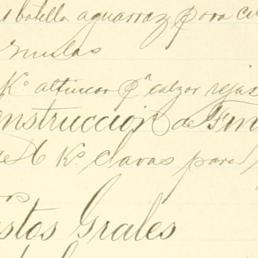 botella aguarraz para
mulas
Ko alfincar pa calzar rejas
onstruccion de Fin
de 6 Ko clavos para
stos Grales